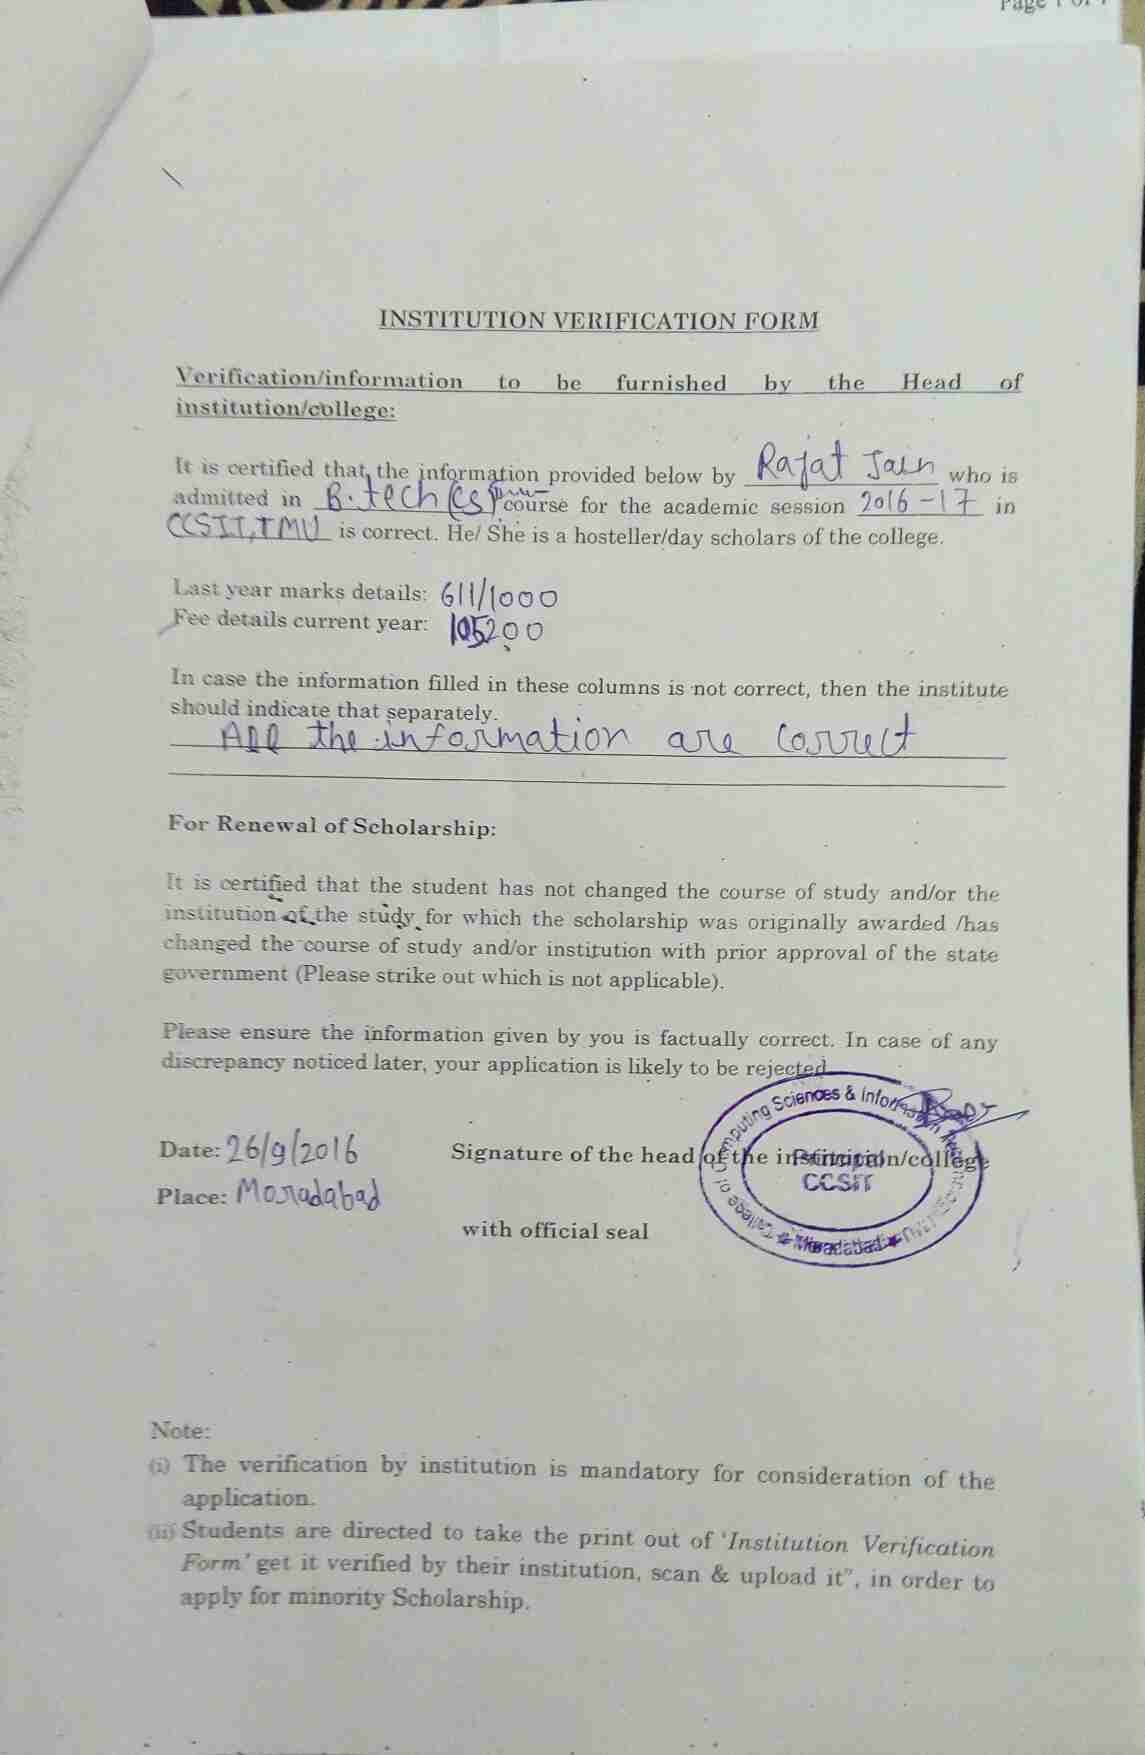 Page 1 of 1
INSTITUTION VERIFICATION FORM
Verification/information to be furnished by the Head of
institution/college:
It is certified that the information provided below by Rajat Jain who is
admitted in B.tech (CS) course for the academic session 2016-17 in
CCSIT,TMU is correct. He/ She is a hosteller/day scholars of the college.
Last year marks details: 611/1000
Fee details current year: 105200
In case the information filled in these columns is not correct, then the institute
should indicate that separately.
All the information are correct
For Renewal of Scholarship:
It is certified that the student has not changed the course of study and/or the
institution of the study for which the scholarship was originally awarded /has
changed the course of study and/or institution with prior approval of the state
government (Please strike out which is not applicable).
Please ensure the information given by you is factually correct. In case of any
discrepancy noticed later, your application is likely to be rejected
Date: 26/9/2016 Signature of the head of the institution/college
Place: Moradabad
with official seal
College of Computing Sciences & Information
Principal
CCSIT
Moradabad
Note:
(i) The verification by institution is mandatory for consideration of the
application.
(ii) Students are directed to take the print out of 'Institution Verification
Form' get it verified by their institution, scan & upload it", in order to
apply for minority Scholarship.